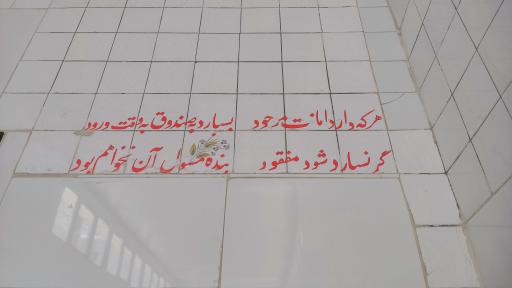 هرکه دارد امانت مرحود بسپارد به صندوق به وقت ورود
گر نسپارد شود مفقود بنده مسئول آن نخواهم بود